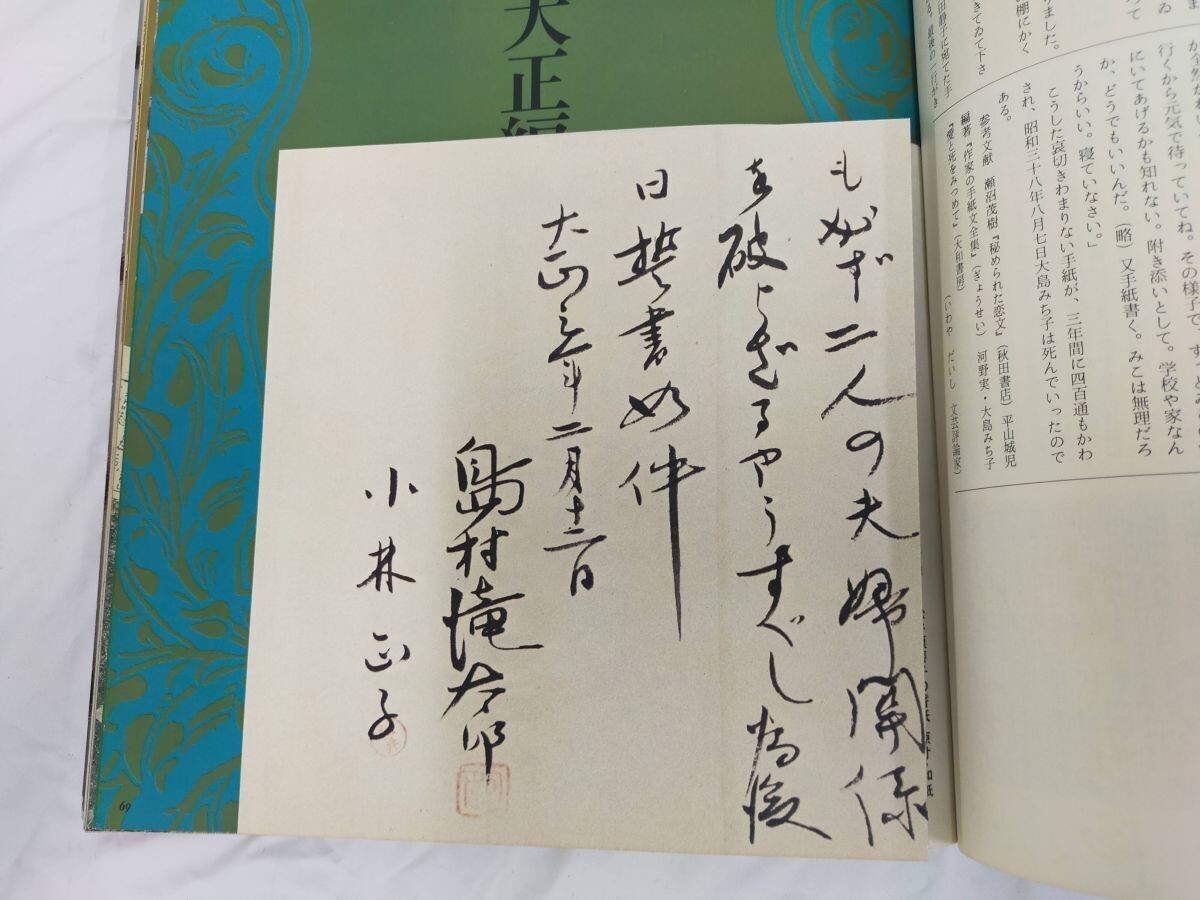 まゐ
めて
りました。
棚にかく
きてゐて下さ
田静子に宛てた手
る。最後の一行がき
行くから元気で待っていてね。その様子で、ずっとみ
にいてあげるかも知れない。附き添いとして。学校や家なん
か、どうでもいいんだ。(略)又手紙書く。みこは無理だろ
うからいい。寝ていなさい。」
こうした哀切きわまりない手紙が、三年間に四百通もかわ
され、昭和三十八年八月七日大島みち子は死んでいったので
ある。
参考文献 瀬沼茂樹『秘められた恋文』(秋田書店) 平山城児
編著『作家の手紙文全集』(ぎょうせい) 河野実・大島みち子
『愛と死をみつめて』(大和書房)
(いわや だいし 文芸評論家)
大正編
も必ず二人の夫婦関係
を破らざるやうすべし為後
日誓書如件
大正三年二月十二日
島村滝太郎
小林正子
69